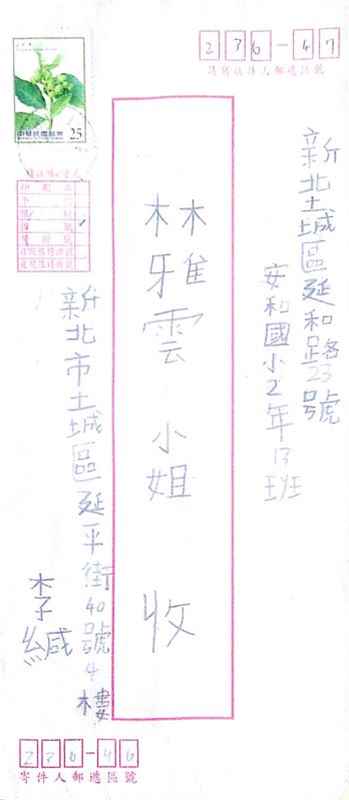 236-47
請寫收件人郵遞區號
新北土城區延和路23號
安和國小2年13班
林雅雲 小姐 收
中華民國郵票
25
新北市土城區延平街40號4樓
李緘
236-46
寄件人郵遞區號